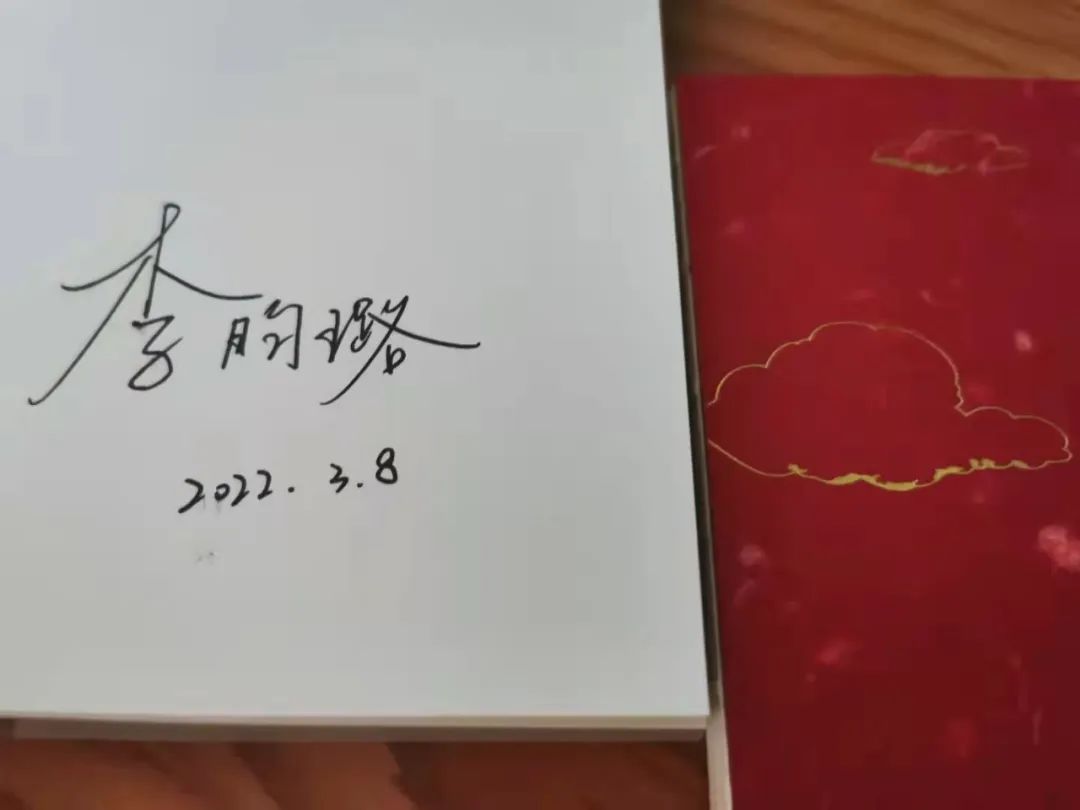 李昀璐
2022.3.8